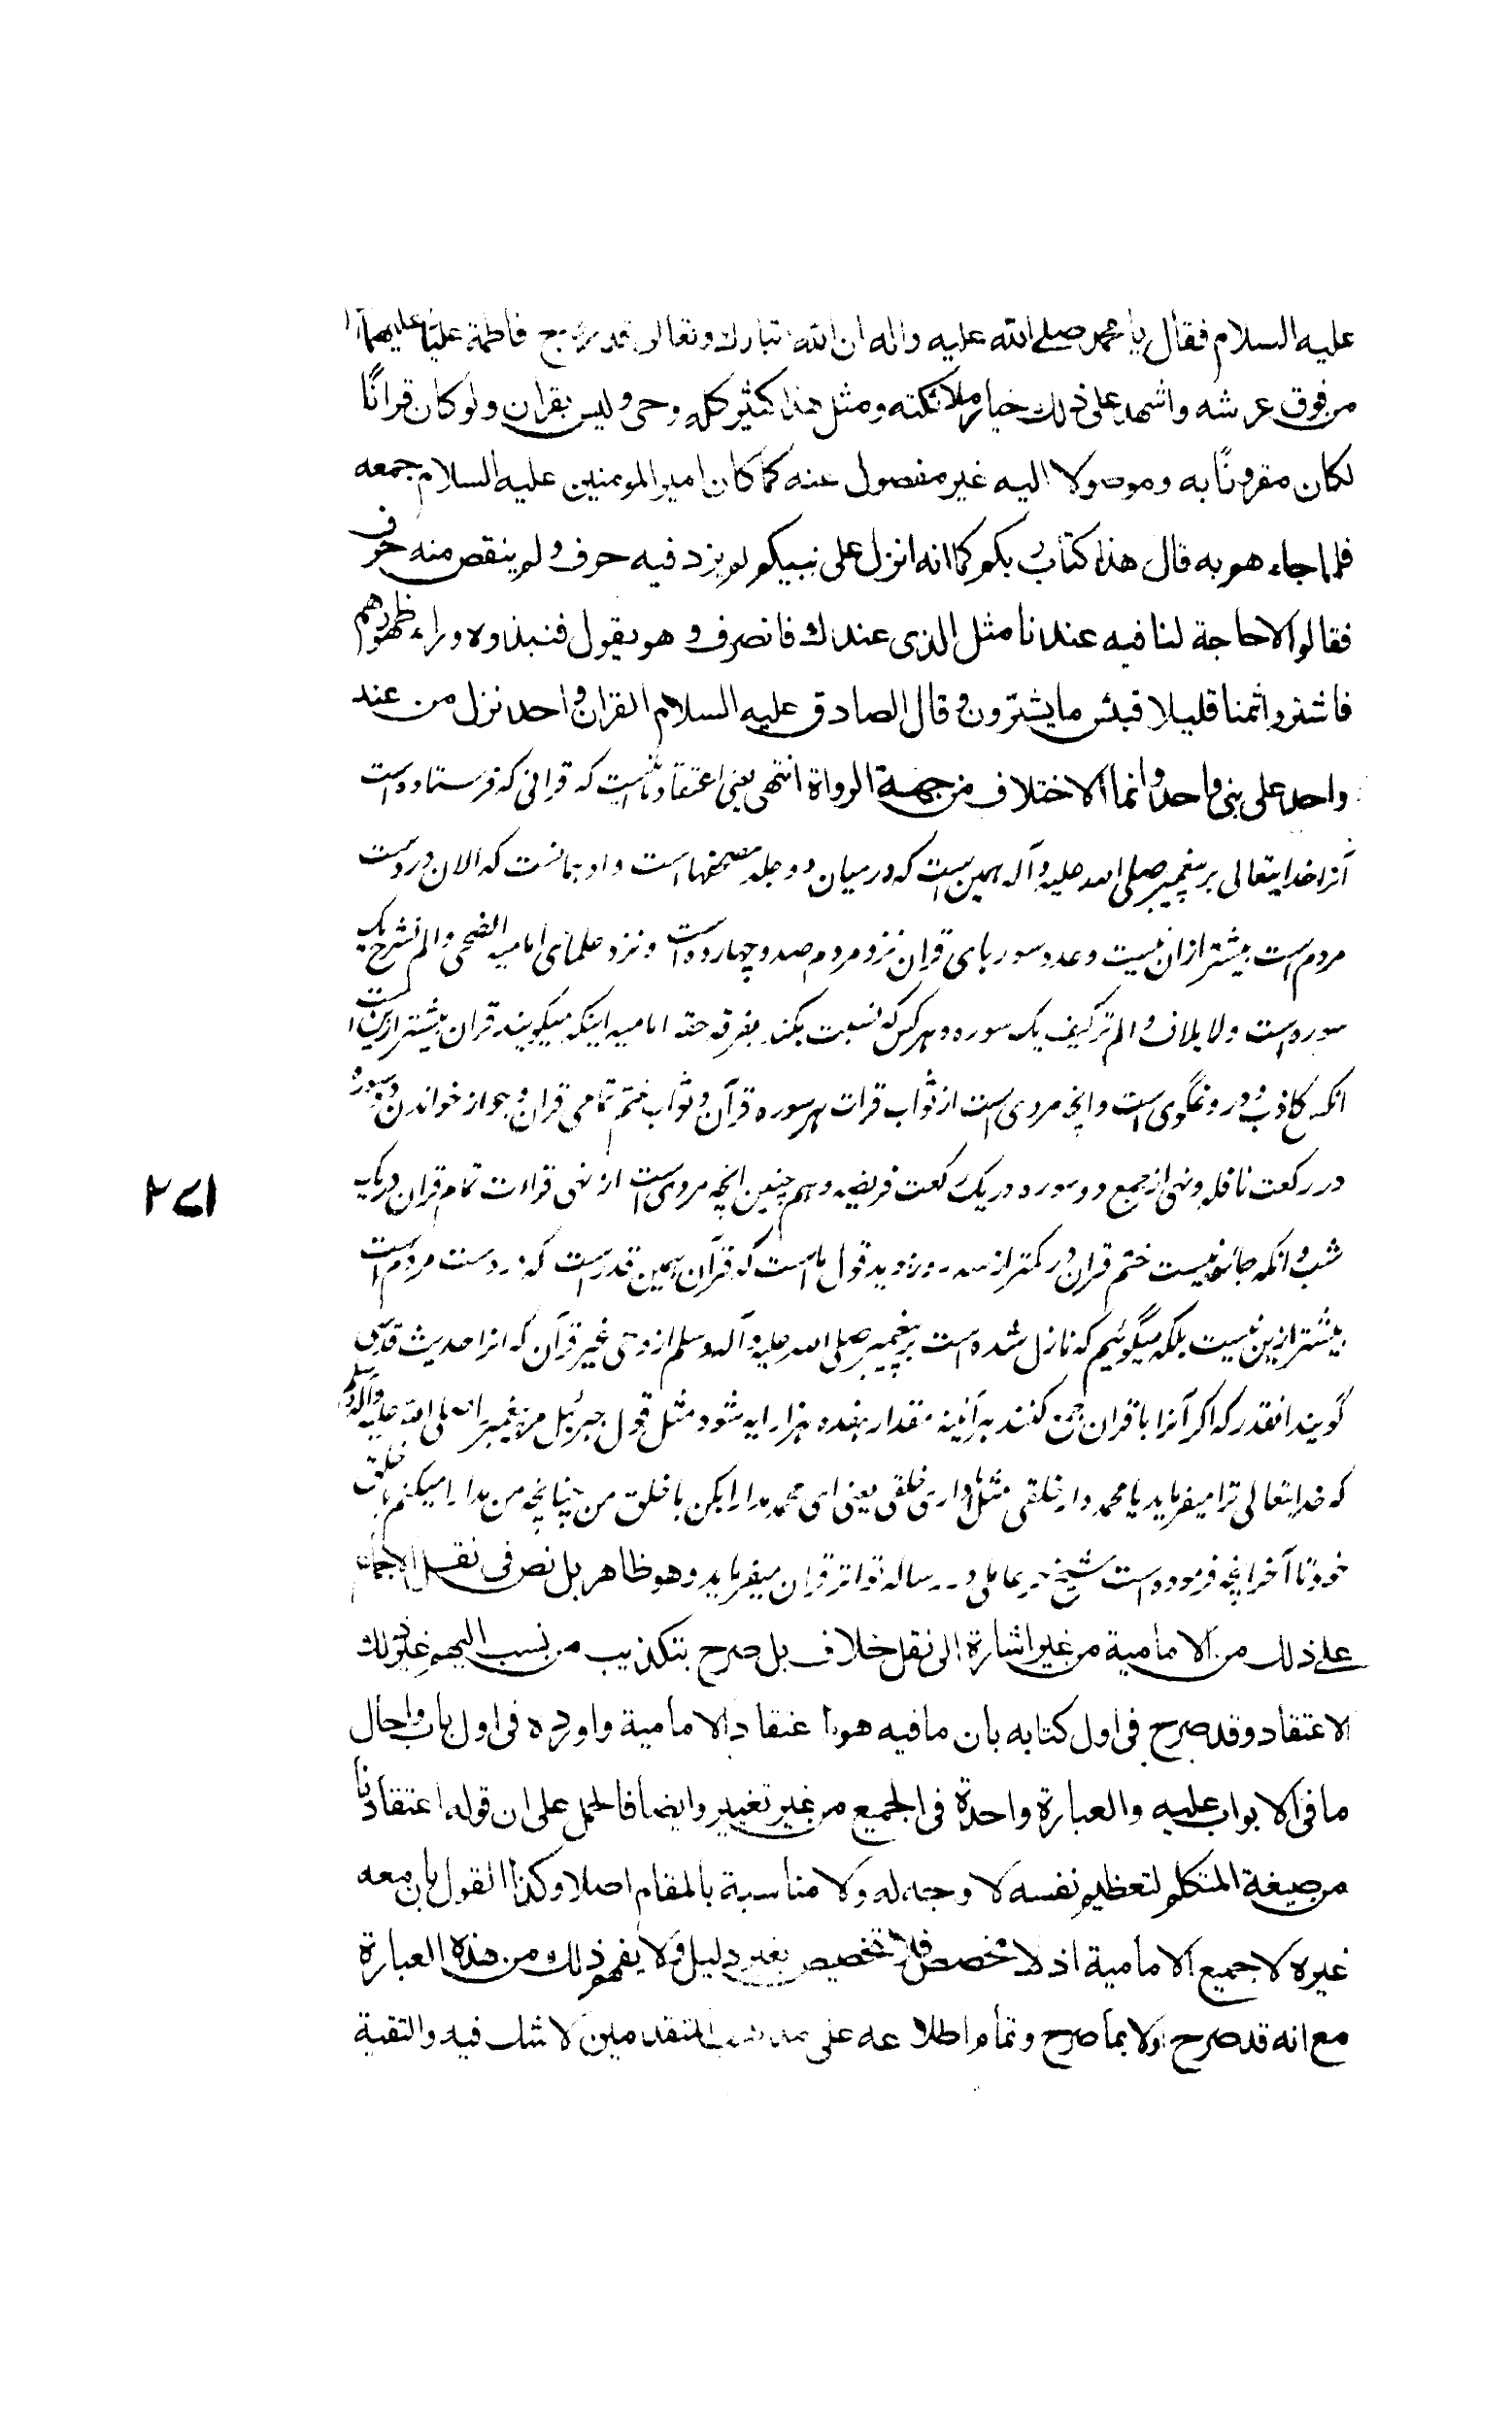 عليه السلام فقال يا محمد صلى الله عليه واله ان الله تبارك وتعالى قد زوج فاطمة عليًا عليهما
من فوق عرشه واشهد على ذلك خيار ملائكته ومثل هذا كثير كله وحى وليس بقران ولو كان قرانًا
لكان مقرونًا به وموصولا اليه غير مفصول عنه كما كان امير المومنين عليه السلام جمعه
فلما جاءهم به قال هذا كتاب ربكم كما انه انزل على نبيكم لم يزد فيه حرف ولم ينقص منه حرف
فقالوا لا حاجة لنا فيه عندنا مثل الذى عندك فانصرف وهو يقول فنبذوه وراء ظهورهم
فاشتروا ثمنا قليلا فبئس ما يشترون وقال الصادق عليه السلام القران واحد نزل من عند
واحد على نبى واحد وانما الاختلاف من جهة الرواة انتهى يعنى اعتقاد ماست كه قرانى كه فرستاده است
آنرا خدايتعالى بر پيغمبر صلى الله عليه وآله همين است كه درميان دو جلد مصحفها است و او همانست كه الان در دست
مردم است بيشتر ازان نيست و عدد سورهاى قران نزد مردم صد و چهارده است و نزد علماى اماميه الضحى و الم نشرح يك
سوره است و لايلاف و الم تركيف يك سوره و هر كس كه نسبت بكند بفرقه حقه اماميه اينكه ميگويند قران بيشتر ازين است
انكه كاذب و دروغگوى است و انچه مروى است از ثواب قرات هر سوره قرآن و ثواب ختم تمامى قران و جواز خواندن دو سوره
در ركعت نافله و نهى از جمع دو سوره در يك ركعت فريضه و هم چنين انچه مروى است از نهى قراءت تمام قران در يك
شب و انكه جائز نيست ختم قران در كمتر از سه روز مويد قول ماست كه قرآن همين قدر است كه در دست مردم است
بيشتر ازين نيست بلكه ميگوئيم كه نازل شده است بر پيغمبر صلى الله عليه وآله وسلم از وحى غير قرآن كه انرا حديث قدسى
گويند انقدر كه اگر آنرا با قران جمع كنند هر آئينه مقدار هفده هزار ايه شود مثل قول جبرئيل مر پيغمبر را صلى الله عليه وآله وسلم
كه خدايتعالى ترا ميفرمايد يا محمد دار خلقى مثل ما ادارى خلقى يعنى اى محمد مدارا بكن با خلق من چنانچه من مدارا ميكنم با خلق
خود تا آخر انچه فرموده است شيخ حر عاملى در رساله تواتر قران ميفرمايد وهو ظاهر بل نص فى نقل الاجماع
على ذلك من الامامية من غير اشارة الى نقل خلاف بل صرح بتكذيب من نسب اليهم غير ذلك
الاعتقاد وقد صرح فى اول كتابه بان ما فيه هو اعتقاد الامامية واورده فى اول باب واحال
ما فى الابواب عليه والعبارة واحدة فى الجميع من غير تغيير وايضا فالحمل على ان قوله اعتقادنا
من صيغة المتكلم لتعظيم نفسه لا وجه له ولا مناسبة بالمقام اصلا وكذا القول بان معه
غيره لا جميع الامامية اذ لا مخصص فلا تخصيص بغير دليل ولا يفهم ذلك من هذه العبارة
مع انه قد صرح اولا بما صرح وتمام اطلاعه على المتقدمين لا شك فيه والتقية
٢٧١